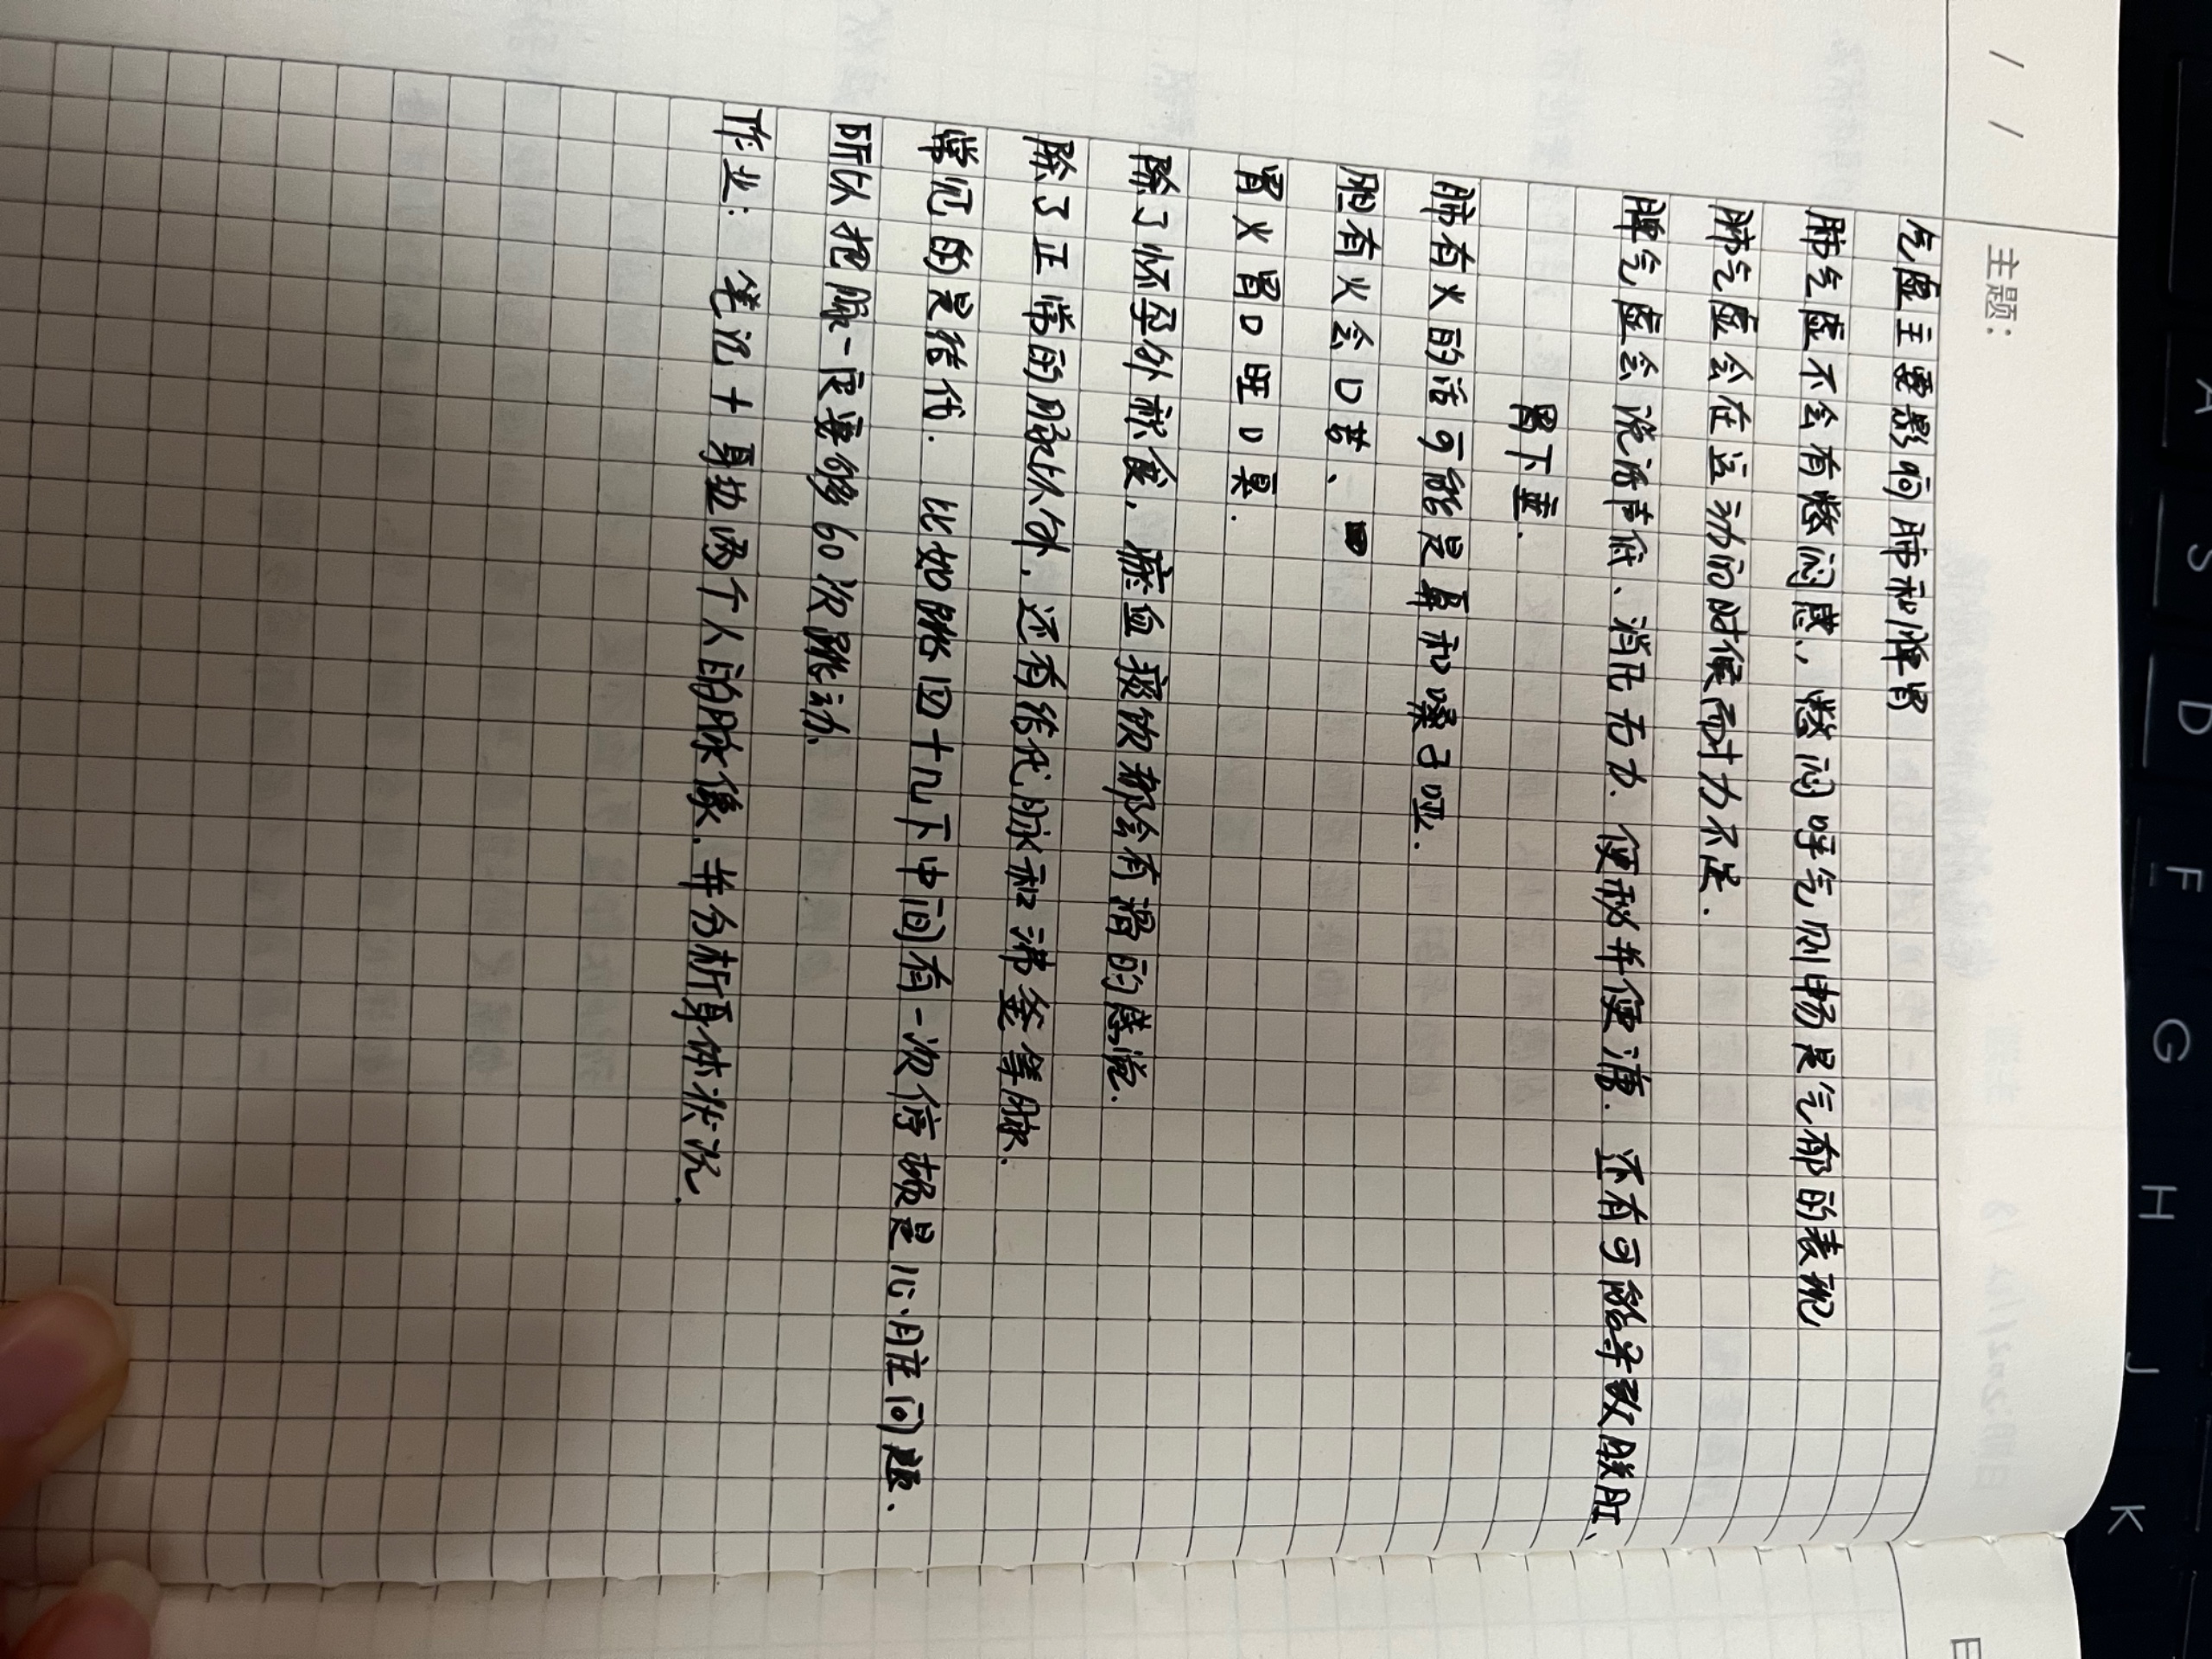 主题:
气虚主要影响肺和脾胃
肺气虚不会有憋闷感、憋闷呼气则畅是气郁的表现
肺气虚会在运动的时候耐力不足.
脾气虚会说话声低、消化无力、便秘并便溏. 还有可能导致脱肛、
胃下垂.
肺有火的话可能是鼻和嗓子哑.
胆有火会口苦、
胃火胃口旺口臭.
除了怀孕外积食,瘀血痰饮都会有滑的感觉.
除了正常的脉以外,还有结代脉和沸釜等脉.
常见的是结代. 比如跳四十几下中间有一次停顿是心脏问题.
所以把脉一定要够60次跳动、
作业: 笔记+身边两个人的脉像.并分析身体状况.
A
S
D
F
G
H
J
K
日